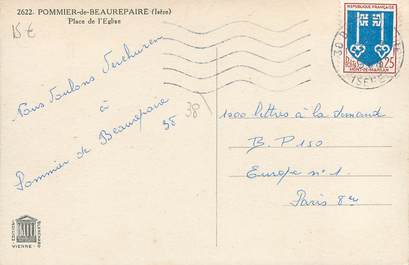 2622. POMMIER-de-BEAUREPAIRE (Isère)
Place de l'Eglise
15€
REPUBLIQUE FRANÇAISE
0,25
MONT-DE-MARSAN
ISERE
Nous voulons
à
Pommier de Beaurepaire
38
38
1000 lettres à la demand
B.P 150
Europe n° 1
Paris 8e
EDITION
BLANCHARD
VIENNE